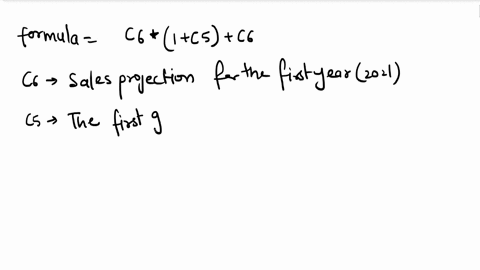 formula = C6 * (1+C5) + C6
C6 → Sales projection for the first year (2021)
C5 → The first g